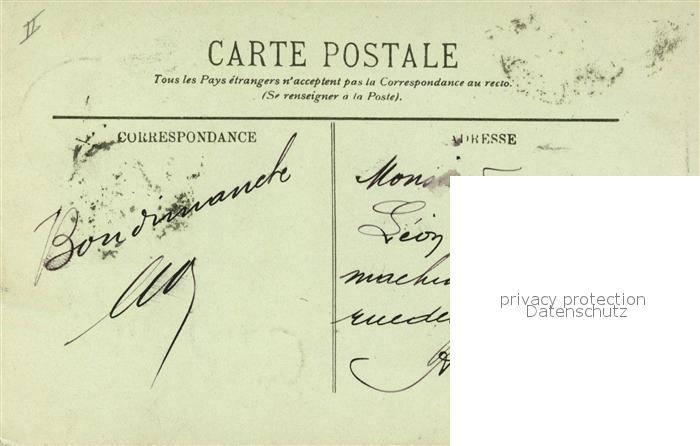 II
CARTE POSTALE
Tous les Pays étrangers n'acceptent pas la Correspondance au recto.
(Se renseigner a la Poste).
CORRESPONDANCE
ADRESSE
Bon dimanche
Mons
Léon
machin
rue de
privacy protection
Datenschutz